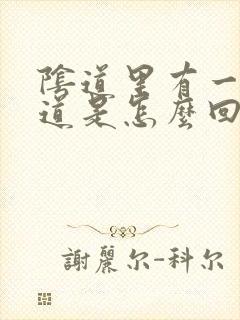 陰道里有一
道是怎麼回
謝麗尔-科尔